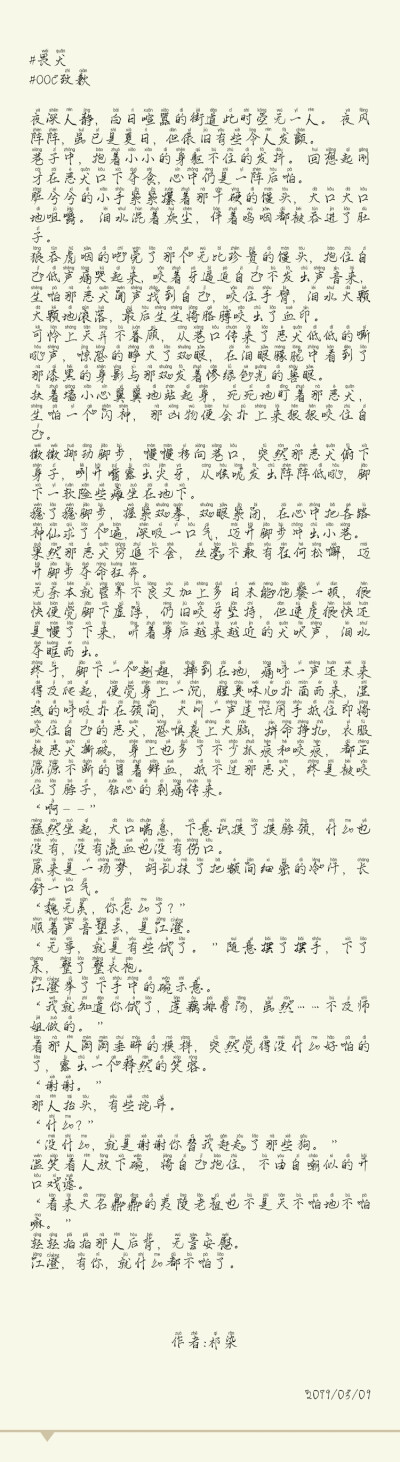 #畏犬
#OOC致歉
夜深人静，向日喧嚣的街道此时空无一人。夜风
阵阵，虽已是夏日，但依旧有些令人发颤。
巷子中，抱着小小的身躯不住的发抖。回想起刚
才在恶犬口下夺食，心中仍是一阵后怕。
脏兮兮的小手紧紧攥着那干硬的馒头，大口大口
地咀嚼。泪水混着灰尘，伴着呜咽都被吞进了肚
子。
狼吞虎咽的吃完了那个无比珍贵的馒头，抱住自
己低声痛哭起来，咬着牙逼迫自己不发出声音来，
生怕那恶犬闻声找到自己，咬住手臂，泪水大颗
大颗地滚落，最后生生将胳膊咬出了血印。
可怜上天并不眷顾，从巷口传来了恶犬低低的嘶
吼声，惊恐的睁大了双眼，在泪眼朦胧中看到了
那漆黑的身影与那双发着修绿色光的兽眼。
扶着墙小心翼翼地站起身，死死地盯着那恶犬，
生怕一个闪神，那凶物便会扑上来狠狠咬住自
己。
微微挪动脚步，慢慢移向巷口，突然那恶犬俯下
身子，咧开嘴露出尖牙，从喉咙发出阵阵低吼，脚
下一软险些瘫坐在地下。
稳了稳脚步，握紧双拳，双眼紧闭，在心中把各路
神仙求了个遍，深吸一口气，迈开脚步冲出小巷。
果然那恶犬穷追不舍，丝毫不敢有任何松懈，迈
开脚步夺命狂奔。
无奈本就营养不良又加上多日未能饱餐一顿，很
快便觉脚下虚浮，仍旧咬牙坚持，但速度很快还
是慢了下来，听着身后越来越近的犬吠声，泪水
夺眶而出。
终于，脚下一个趔趄，摔到在地，痛呼一声还未来
得及爬起，便觉身上一沉，腥臭味心扑面而来，湿
热的呼吸扑在颈间，大叫一声连忙用手抵住即将
咬住自己的恶犬，恐惧袭上大脑，拼命挣扎，衣服
被恶犬撕破，身上也多了不少抓痕和咬痕，都正
源源不断的冒着鲜血，抵不过那恶犬，终是被咬
住了脖子，钻心的刺痛传来。
“啊——”
猛然坐起，大口喘息，下意识摸了摸脖颈，什么也
没有，没有流血也没有伤口。
原来是一场梦，胡乱抹了把额间细密的冷汗，长
舒一口气。
“魏无羡，你怎么了？”
顺着声音望去，是江澄。
“无事，就是有些饿了。”随意摆了摆手，下了
床，整了整衣袍。
江澄举了下手中的碗示意。
“我就知道你饿了，莲藕排骨汤，虽然……不及师
姐做的。”
看那人闷闷垂眸的模样，突然觉得没什么好怕的
了，露出一个释然的笑容。
“谢谢。”
那人抬头，有些诧异。
“什么？”
“没什么，就是谢谢你替我赶走了那些狗。”
温笑着人放下碗，将自己抱住，不由自嘲似的开
口戏谑。
“看来大名鼎鼎的夷陵老祖也不是天不怕地不怕
嘛。”
轻轻拍拍那人后背，无言安慰。
江澄，有你，就什么都不怕了。
作者：祁染
2019/03/09